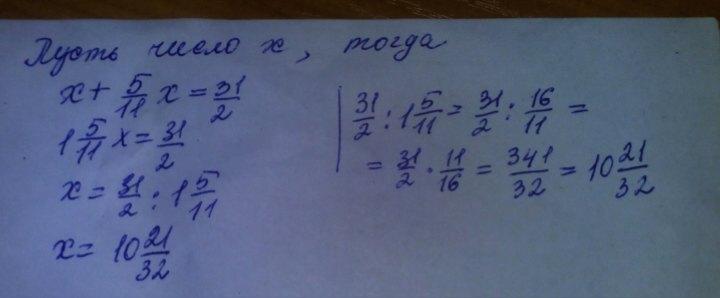 Пусть число x, тогда
x + 5/11 x = 31/2
1 5/11 x = 31/2
x = 31/2 : 1 5/11
x = 10 21/32
31/2 : 1 5/11 = 31/2 : 16/11 =
= 31/2 · 11/16 = 341/32 = 10 21/32